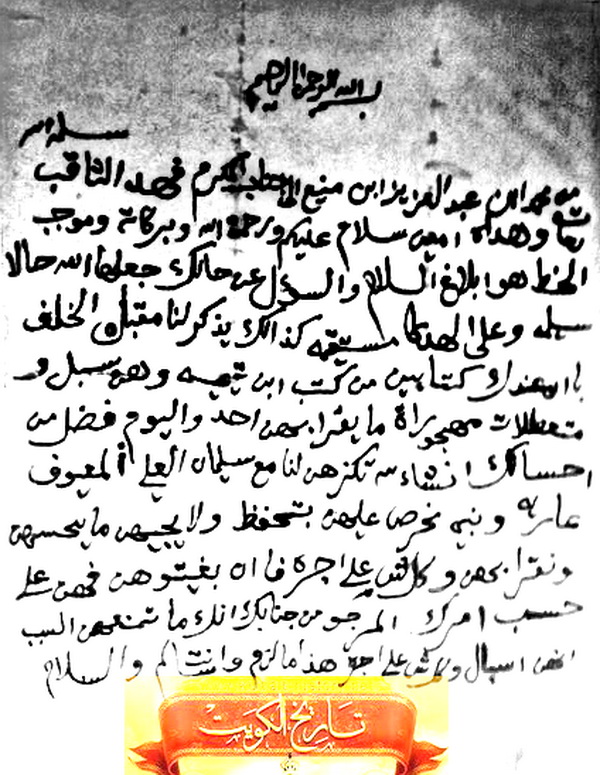 بسم الله الرحمن الرحيم
سلمه الله
من محمد ابن عبد العزيز ابن منيع الى جناب المكرم فهد الثاقب
تعالى وهداه امين سلام عليكم ورحمة الله وبركاته وموجب
الخط هو ابلاغ السلام والسؤال عن حالك جعلها الله حالا
سلمه وعلى الهدى مستقيمه كذالك يذكر لنا مقبل الخلف
ان عندك كتابين من كتب ابن تيميه وهن سبل و
متعطلات مهجورات ما يقرا بهن احد واليوم فضل من
احسانك انشاء الله تكزهن لنا مع سليمان العلي المعيوف
عاريه ونبي نحرص عليهن بتحفظ ولا يجيهن ما يحسهن
ونقرا بهن وكل شي على اجره فاان بغيتوهن فهن على
حسب امرك المرجو من جنابك انك ما تمنعهن السبب
انهن اسبال وكل شي على اجر هذا ما لزم وانت سالم والسلام
تاريخ الكويت